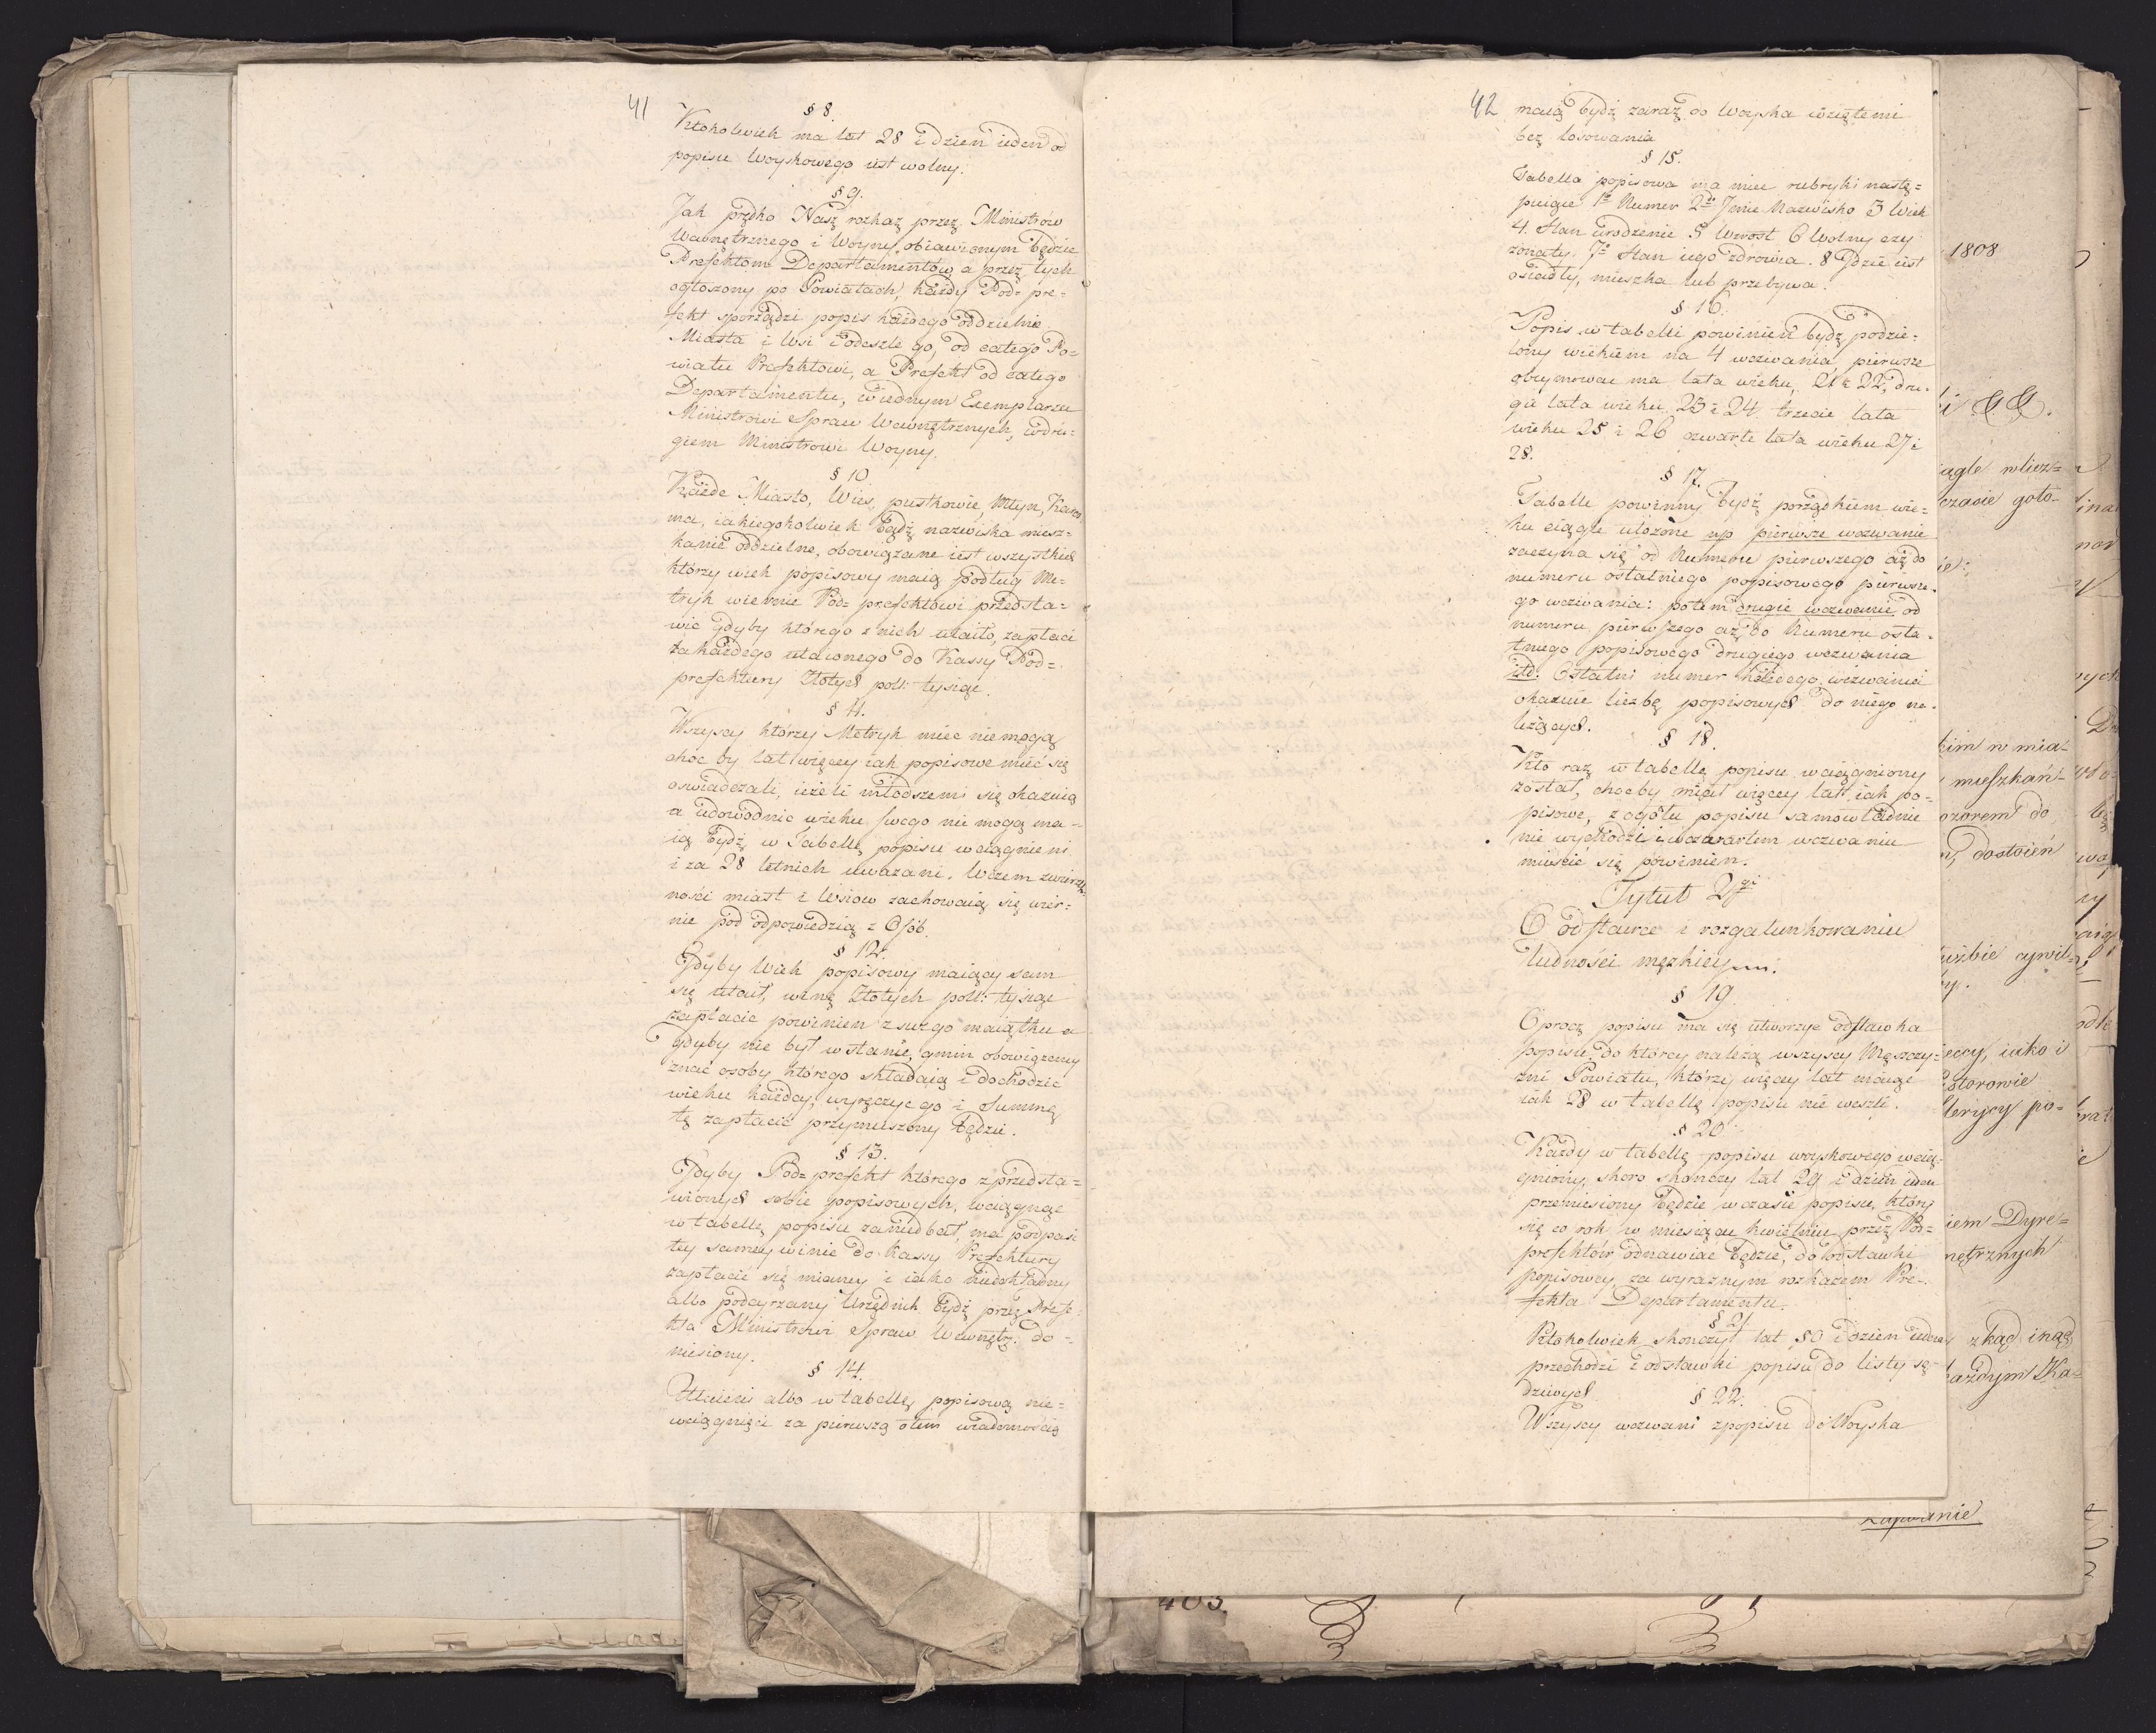 41
§ 8.
Ktokolwiek ma lat 28 i dzień ieden od
popisu Woyskowego iest wolny.
§ 9.
Jak prędko Nasz rozkaz przez Ministrów
Wewnętrznego i Woyny obiawionym będzie
Prefektom Departamentów a przez tych
ogłoszony po Powiatach, każdy Pod= pre=
fekt sporządzi popis każdego oddzielnie
Miasta i Wsi i odeszle go, od całego Po=
wiatu Prefektowi, a Prefekt od całego
Departamentu, w iednym Exemplarzu
Ministrowi Spraw Wewnętrznych, w dru=
giem Ministrowi Woyny.
§ 10
Każde Miasto, Wieś, pustkowie, Młyn, Karcz
ma, iakiegokolwiek bądź nazwiska miesz=
kanie oddzielne, obowiązane iest wszystkich
którzy wiek popisowy maią podług Me=
tryk wiernie Pod= prefektowi przedsta=
wić gdyby którego z nich utaiło, zapłaci
za każdego utaionego do Kassy Pod=
prefektury Złotych pol: tysiąc.
§ 11.
Wszyscy którzy Metryk mieć niemogą
choć by lat więcey iak popisowe mieć się
oswiadczali, ieżeli młodszemi się okazuią
a udowodnić wieku swego nie mogą ma=
ią bydź w Tabellę popisu wciągnieni
i za 28 letnich uważani. W czem zwierzch
ności miast i Wsiow zachowaią się wier=
nie pod odpowiedzią z Osób.
§ 12.
Gdyby Wiek popisowy maiący sam
się utaił, winę Złotych pol: tysiąc
zapłacić powinien z swego maiątku a
gdyby nie był w stanie, gmin obowiązany
znać osoby którego składaią i dochodzić
wieku każdey, wyręczyć go i Summę
tę zapłacić przymuszony będzie.
§ 13.
Gdyby Pod= prefekt którego z przedsta=
wionych sobie popisowych, wciągnąć
w tabellę popisu zaniedbał, ma podpaść
tey samey winie do Kassy Prefektury
zapłacić się mianey i iako niedokładny
albo podeyrzany Urzędnik bydź przez Prefe=
kta Ministrowi Spraw Wewnętrz: do=
niesiony.
§ 14.
Utaieni albo w tabellę popisową nie=
wciągnięci za pierwszą o tem wiadomością
42
maią bydź zaraz do Woyska wziętemi
bez losowania
§ 15.
Tabella popisowa ma mieć rubryki nastę=
puiące 1º Numer 2º Jmie Nazwisko 3 Wiek
4. Stan urodzenie 5 Wzrost 6 Wolny czy
żonaty. 7º Stan iego zdrowia. 8 Gdzie iest
osiadły, mieszka lub przebywa.
§ 16.
Popis w tabelli powinien bydź podzie=
lony wiekiem na 4 wezwania, pierwsze
obeymować ma lata wieku, 21 i 22, dru=
gie lata wieku 23 i 24 trzecie lata
wieku 25 i 26 czwarte lata wieku 27 i
28.
§ 17.
Tabelle powinny bydź porządkiem wie=
ku ciągle ułożone np pierwsze wezwanie
zaczyna się od Numeru pierwszego aż do
numeru ostatniego popisowego pierwsze=
go wezwania: potem drugie wezwanie od
numeru pierwszego aż do Numeru osta=
tniego popisowego drugiego wezwania
itd. Ostatni numer każdego wezwania
okazuie liczbę popisowych do niego na=
leżących.
§ 18.
Kto raz w tabellę popisu wciągniony
został, choćby miał więcey lat iak po=
pisowe, z ogółu popisu samowładnie
nie wychodzi i w czwartem wezwaniu
mieścić się powinien.
Tytuł 2gi
O odstawce i rozgatunkowaniu
ludności męzkiey.
§ 19.
Oprócz popisu ma się utworzyć odstawka
popisu, do którey należą wszyscy Męszczy=
zni Powiatu, którzy więcey lat maiąc
iak 28 w tabellę popisu nie weszli.
§ 20
Każdy w tabellę popisu woyskowego wcią=
gniony, skoro skończy lat 29 i dzień ieden
przeniesiony będzie w czasie popisu, który
się co rok w miesiącu kwietniu przez Pod=
prefektów odnawiać będzie, do odstawki
popisowey za wyraznym rozkazem Pre=
fekta Departamentu.
§ 21
Ktokolwiek skończył lat 50 i dzien ieden
przechodzi z odstawki popisu do listy sę=
dziwych
§ 22.
Wszyscy wezwani z popisu do Woyska
1808
agle wlicz=
czasie goto=
kim w mia=
mieszkań=
ozorem do
dostoień
użbie cywil=
ieccy, iako i
storowie
lerycy po=
iem Dyre=
nętrznych
z kąd inąd
ażdym Ka=
403.